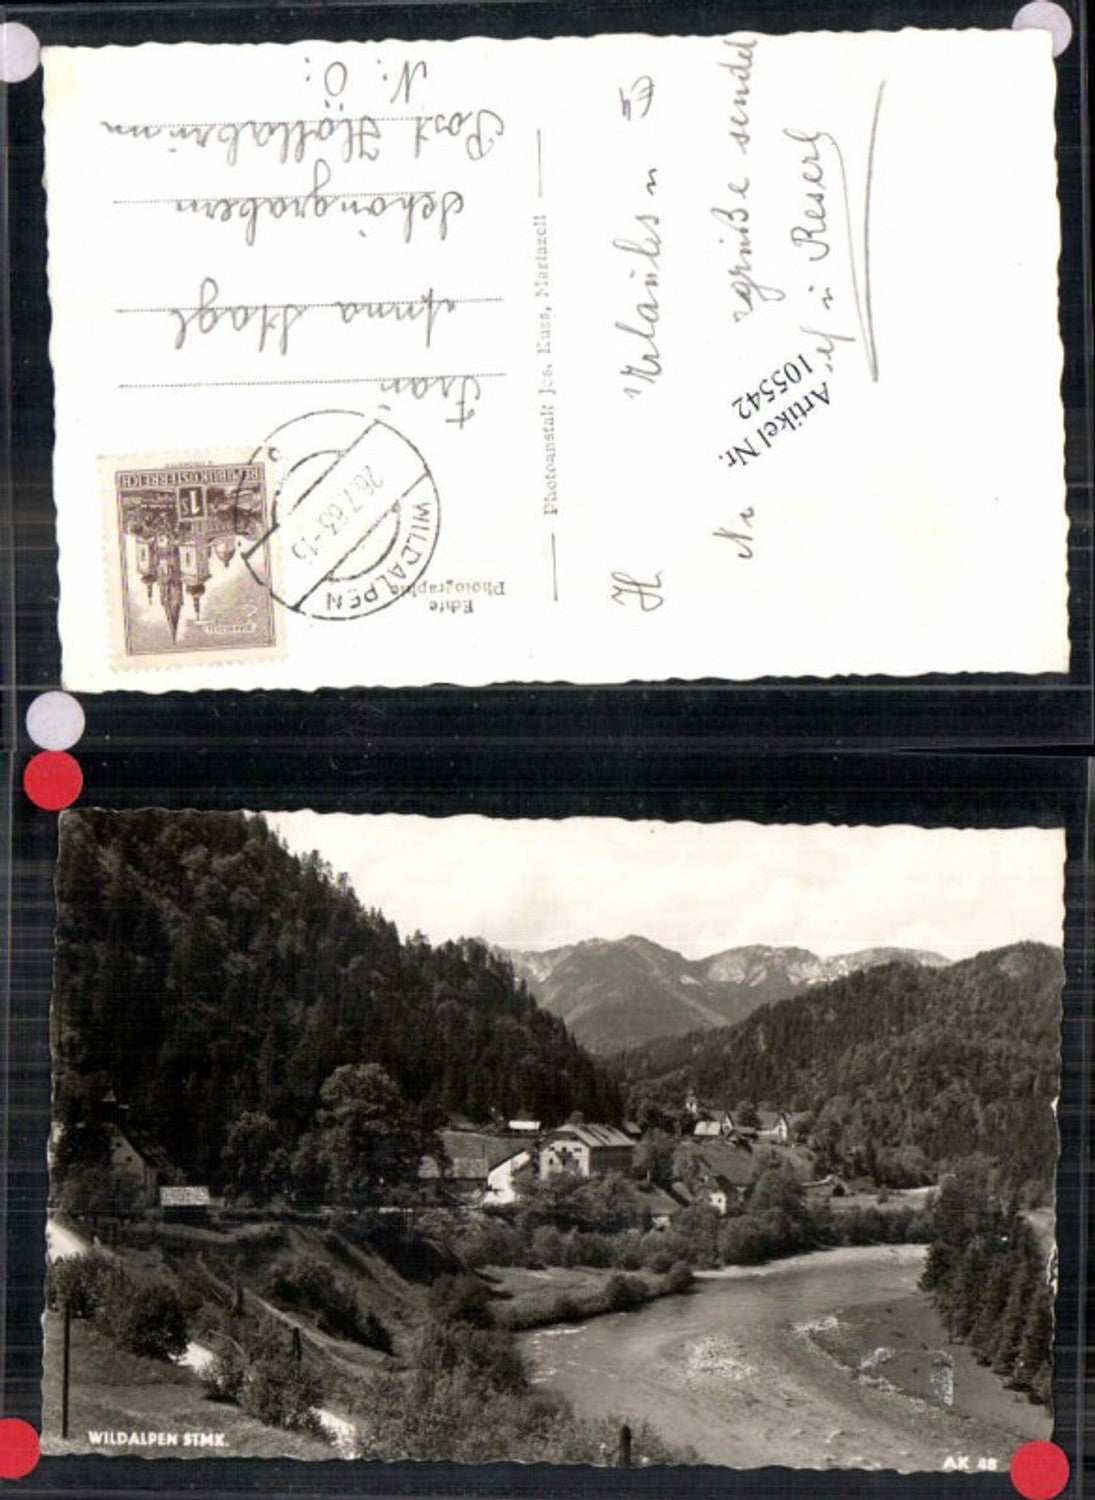 Echte
Photographie
WILDALPEN
26.7.63-15
REPUBLIK ÖSTERREICH
1 S
MARIAZELL
Frau
Anna Hagl
Schöngrabern
Post Hollabrunn
N. Ö.
Photoanstalt Jos. Kuss, Mariazell
Urlaubs
grüße sendet
u Reserl
Artikel Nr.
105542
WILDALPEN STMK.
AK 48